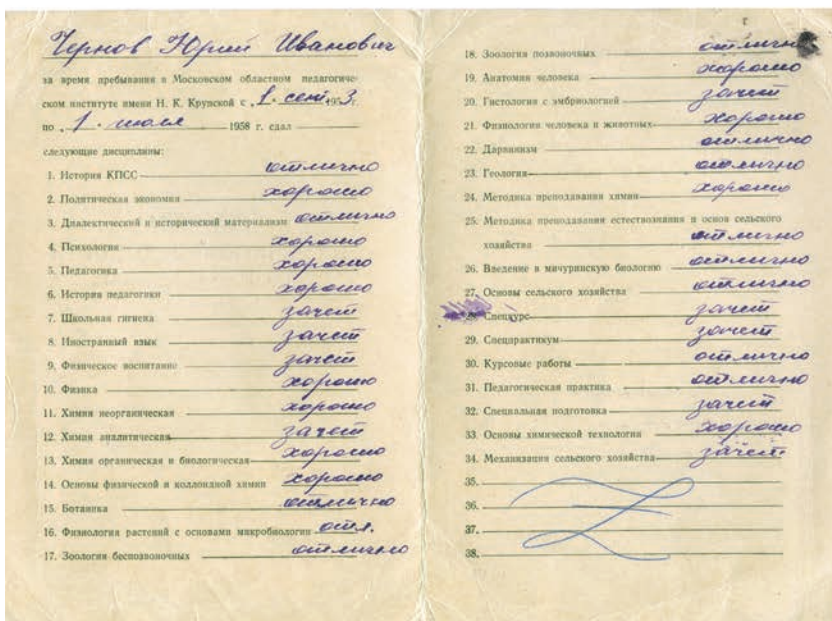 Чернов Юрий Иванович
за время пребывания в Московском областном педагогиче-
ском институте имени Н. К. Крупской с „1. сент. 1953 г.
по „1. июля 1958 г. сдал
следующие дисциплины:
1. История КПСС отлично
2. Политическая экономия хорошо
3. Диалектический и исторический материализм отлично
4. Психология хорошо
5. Педагогика хорошо
6. История педагогики хорошо
7. Школьная гигиена зачет
8. Иностранный язык зачет
9. Физическое воспитание зачет
10. Физика хорошо
11. Химия неорганическая хорошо
12. Химия аналитическая зачет
13. Химия органическая и биологическая хорошо
14. Основы физической и коллоидной химии хорошо
15. Ботаника отлично
16. Физиология растений с основами микробиологии отл.
17. Зоология беспозвоночных отлично
18. Зоология позвоночных отлично
19. Анатомия человека хорошо
20. Гистология с эмбриологией зачет
21. Физиология человека и животных хорошо
22. Дарвинизм отлично
23. Геология отлично
24. Методика преподавания химии хорошо
25. Методика преподавания естествознания и основ сельского
хозяйства отлично
26. Введение в мичуринскую биологию отлично
27. Основы сельского хозяйства отлично
28. Спецкурс зачет
29. Спецпрактикум зачет
30. Курсовые работы отлично
31. Педагогическая практика отлично
32. Специальная подготовка зачет
33. Основы химической технологии хорошо
34. Механизация сельского хозяйства зачет
35.
36.
37.
38.